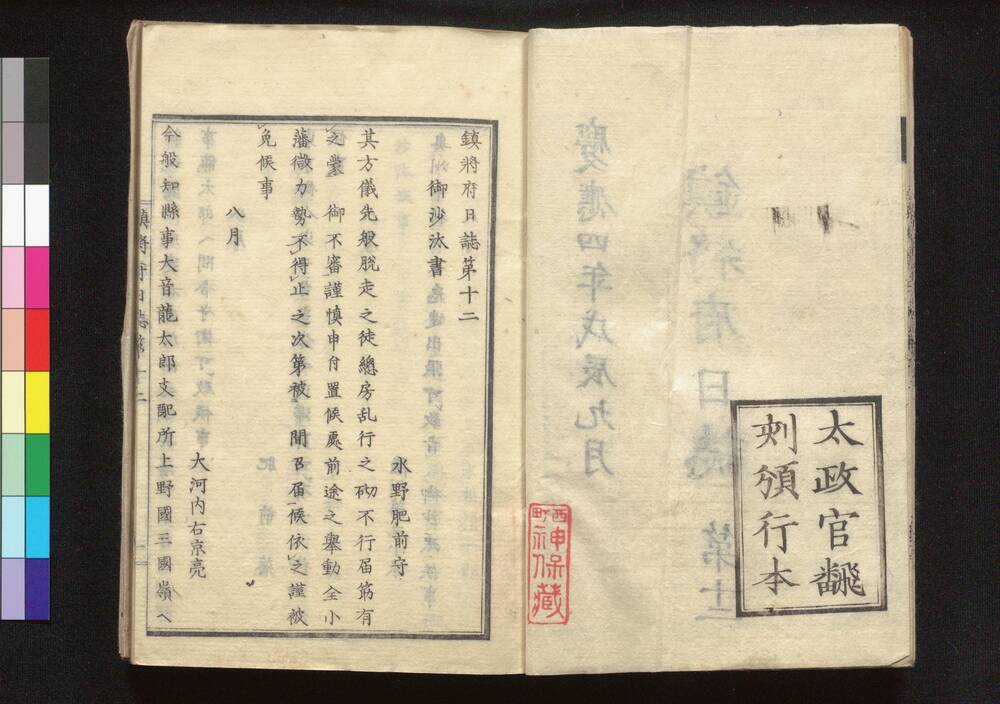 太政官飜
刻頒行本
西町
神保藏
鎮将府日誌第十二
御沙汰書
水野肥前守
其方儀先般脱走之徒總房乱行之砌不行届筋有
之蒙 御不審謹慎申付置候處前途之擧動全小
藩微力勢不得止之次第被 聞召届候依之謹被
免候事
八月
大河内右京亮
今般知縣事大音龍太郎支配所上野國三國嶺へ
鎮将府日誌第十二